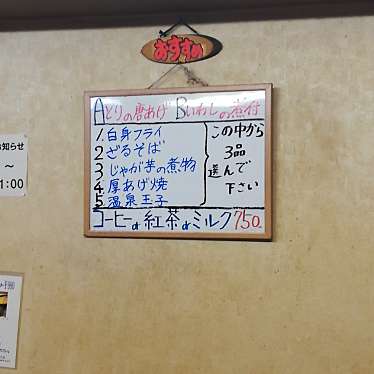 おすすめ
Aとりの唐あげ Bいわしの煮付
1.白身フライ
2 ざるそば
3 じゃが芋の煮物
4 厚あげ焼
5 温泉玉子
この中から
3品
選んで
下さい
コーヒーor紅茶orミルク750
お知らせ
～
1:00